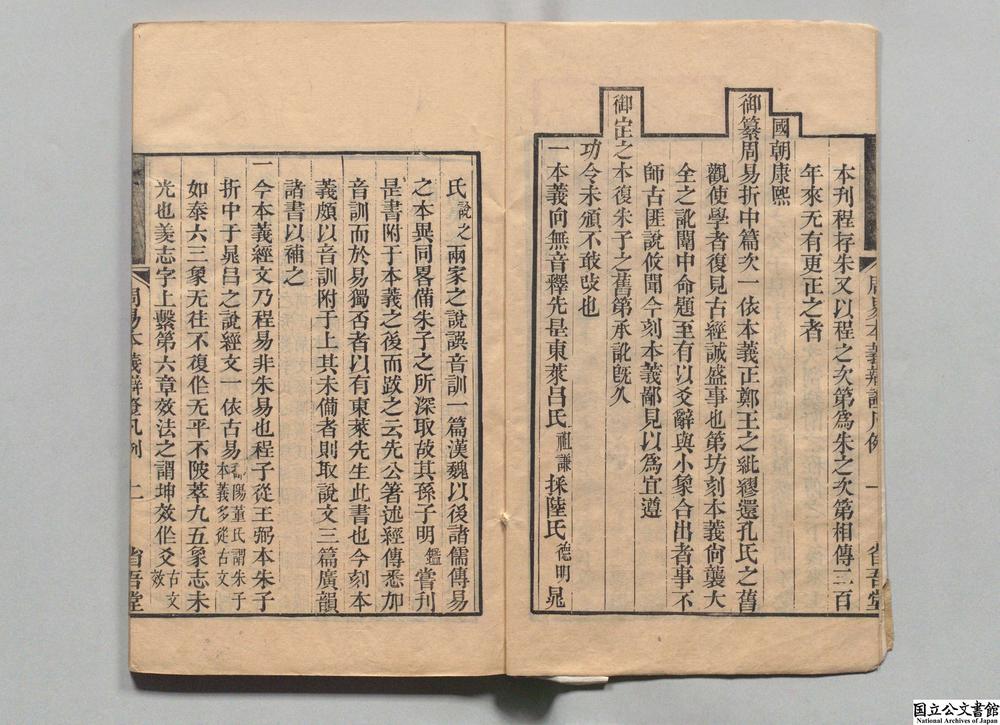 本刊程存朱又以程之次第爲朱之次第相傳三百
年來无有更正之者
國朝康熙
御纂周易折中篇次一依本義正鄭王之紕繆還孔氏之舊
觀使學者復見古經誠盛事也第坊刻本義尙襲大
全之訛闈中命題至有以爻辭與小象合出者事不
師古匪說攸聞今刻本義鄙見以爲宜遵
御定之本復朱子之舊第承訛旣久
功令未頒不敢改也
一本義向無音釋先是東萊呂氏祖謙採陸氏德明晁
周易本義辨證凡例 一 省吾堂
氏說之兩家之說譔音訓一篇漢魏以後諸儒傳易
之本異同畧備朱子之所深取故其孫子明鑑嘗刊
是書附于本義之後而跋之云先公著述經傳悉加
音訓而於易獨否者以有東萊先生此書也今刻本
義頗以音訓附于上其未備者則取說文三篇廣韻
諸書以補之
一今本義經文乃程易非朱易也程子從王弼本朱子
折中于晁呂之說經文一依古易鄱陽董氏謂朱子本義多從古文
如泰六三象无往不復作无平不陂萃九五象志未
光也羨志字上繫第六章效法之謂坤效作爻古文效
周易本義辨證凡例 二 省吾堂
国立公文書館
National Archives of Japan